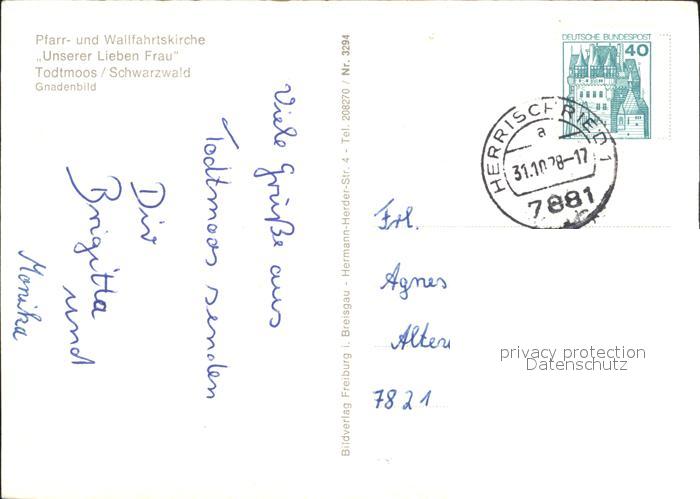 Pfarr- und Wallfahrtskirche
„Unserer Lieben Frau“
Todtmoos / Schwarzwald
Gnadenbild
Viele Grüße aus
Todtmoos senden
Dir
Brigitta
und
Monika
Bildverlag Freiburg i. Breisgau - Hermann-Herder-Str. 4 - Tel. 208270 / Nr. 3294
DEUTSCHE BUNDESPOST
40
HERRISCHRIED 1
a
31.10.78-17
7881
Frl.
Agnes
7821
privacy protection
Datenschutz